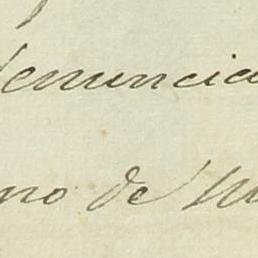 denuncia
no de M